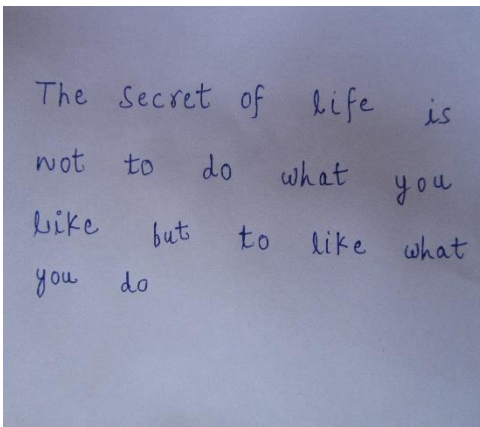 The secret of life is
not to do what you
like but to like what
you do